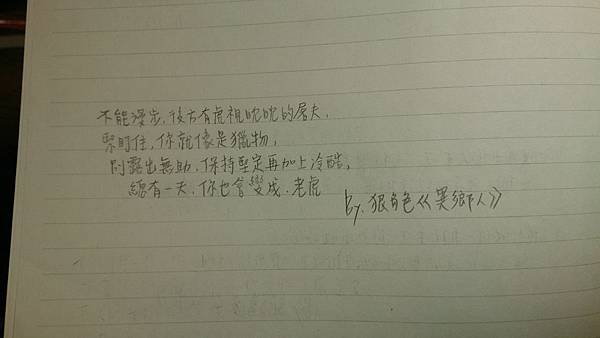 不能漫步,後方有虎視眈眈的屠夫,
緊盯住,你就像是獵物,
別露出無助,保持堅定再加上冷酷,
總有一天,你也會變成,老虎
by.狠角色《異鄉人》